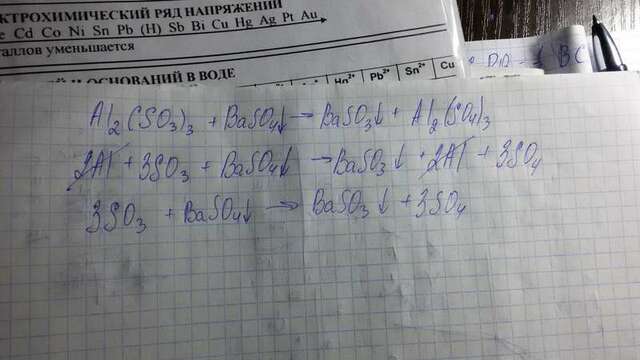 КТРОХИМИЧЕСКИЙ РЯД НАПРЯЖЕНИЙ
е Cd Co Ni Sn Pb (H) Sb Bi Cu Hg Ag Pt Au
таллов уменьшается
И ОСНОВАНИЙ В ВОДЕ
Hg²⁺ Pb²⁺ Sn²⁺ Cu
BC
Al₂(SO₃)₃ + BaSO₄↓ → BaSO₃↓ + Al₂(SO₄)₃
2Al + 3SO₃ + BaSO₄↓ → BaSO₃↓ + 2Al + 3SO₄
3SO₃ + BaSO₄↓ → BaSO₃↓ + 3SO₄